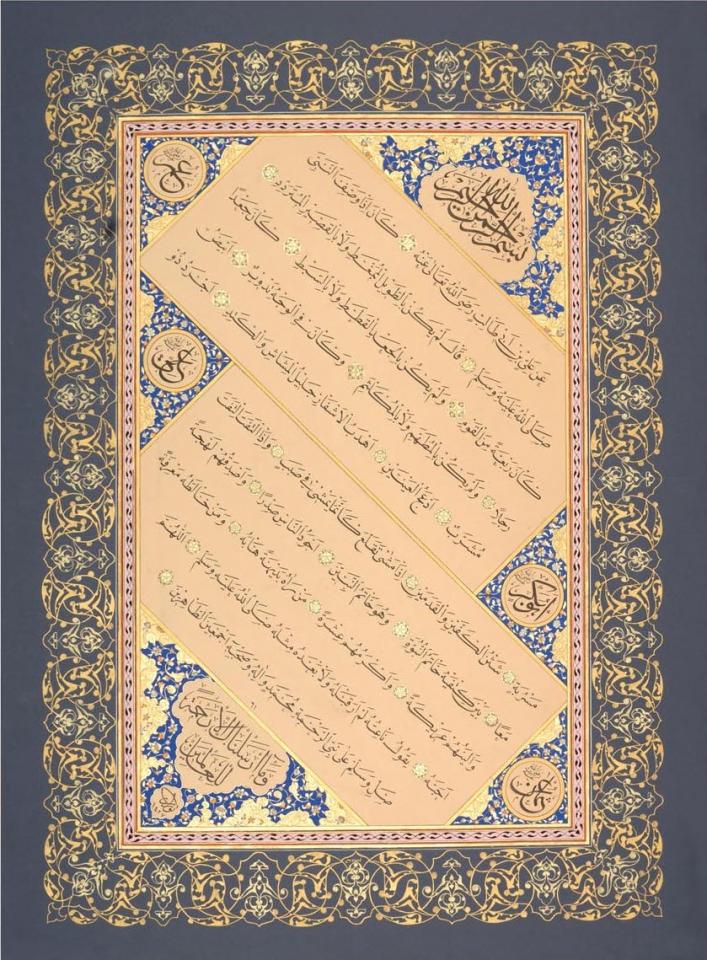 بسم الله الرحمن الرحيم
عن علي بن ابي طالب رضي الله تعالى عنه كان اذا وصف النبي
صلى الله عليه وسلم قال لم يكن بالطويل الممغط ولا بالقصير المتردد
كان ربعة من القوم ولم يكن بالجعد القطط ولا بالسبط كان جعدا
رجلا ولم يكن بالمطهم ولا بالمكلثم وكان في الوجه تدوير ابيض
مشرب ادعج العينين اهدب الاشفار جليل المشاش والكتد اجرد ذو
مسربة شثن الكفين والقدمين اذا مشى تقلع كانما يمشي في صبب واذا التفت التفت
معا بين كتفيه خاتم النبوة وهو خاتم النبيين اجود الناس صدرا واصدقهم لهجة
والينهم عريكة واكرمهم عشرة من رآه بديهة هابه ومن خالطه معرفة
احبه يقول ناعته لم ار قبله ولا بعده مثله صلى الله عليه وسلم اللهم
صل وسلم على نبي الرحمة محمد وآله وصحبه اجمعين الطاهرين
ابو بكر
عثمان
وما ارسلناك الا رحمة
للعالمين